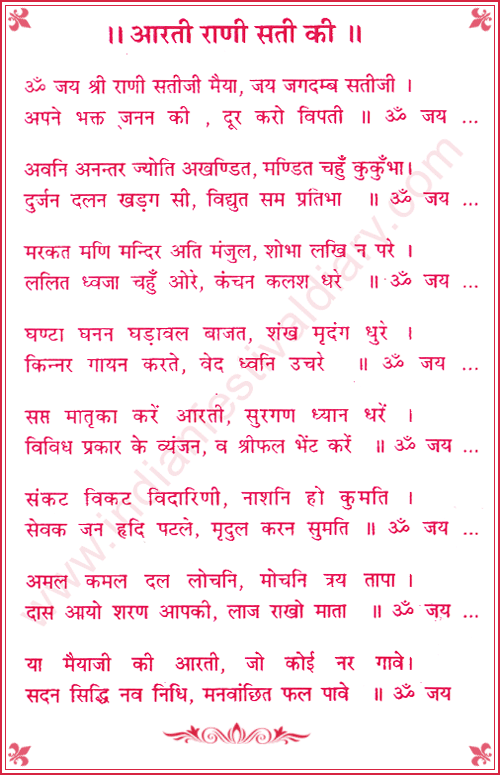 ।। आरती राणी सती की ॥
ॐ जय श्री राणी सतीजी मैया, जय जगदम्ब सतीजी ।
अपने भक्त जनन की , दूर करो विपती ॥ ॐ जय ...
अवनि अनन्तर ज्योति अखण्डित, मण्डित चहुँ कुकुँभा।
दुर्जन दलन खड़ग सी, विद्युत सम प्रतिभा ॥ ॐ जय ...
मरकत मणि मन्दिर अति मंजुल, शोभा लखि न परे ।
ललित ध्वजा चहुँ ओरे, कंचन कलश धरे ॥ ॐ जय ...
घण्टा घनन घड़ावल बाजत, शंख मृदंग धुरे ।
किन्नर गायन करते, वेद ध्वनि उचरे ॥ ॐ जय ...
सप्त मातृका करें आरती, सुरगण ध्यान धरें ।
विविध प्रकार के व्यंजन, व श्रीफल भेंट करें ॥ ॐ जय ...
संकट विकट विदारिणी, नाशनि हो कुमति ।
सेवक जन हृदि पटले, मृदुल करन सुमति ॥ ॐ जय ...
अमल कमल दल लोचनि, मोचनि त्रय तापा ।
दास आयो शरण आपकी, लाज राखो माता ॥ ॐ जय ...
या मैयाजी की आरती, जो कोई नर गावे।
सदन सिद्धि नव निधि, मनवांछित फल पावे ॥ ॐ जय
www.indianfestivaldiary.com